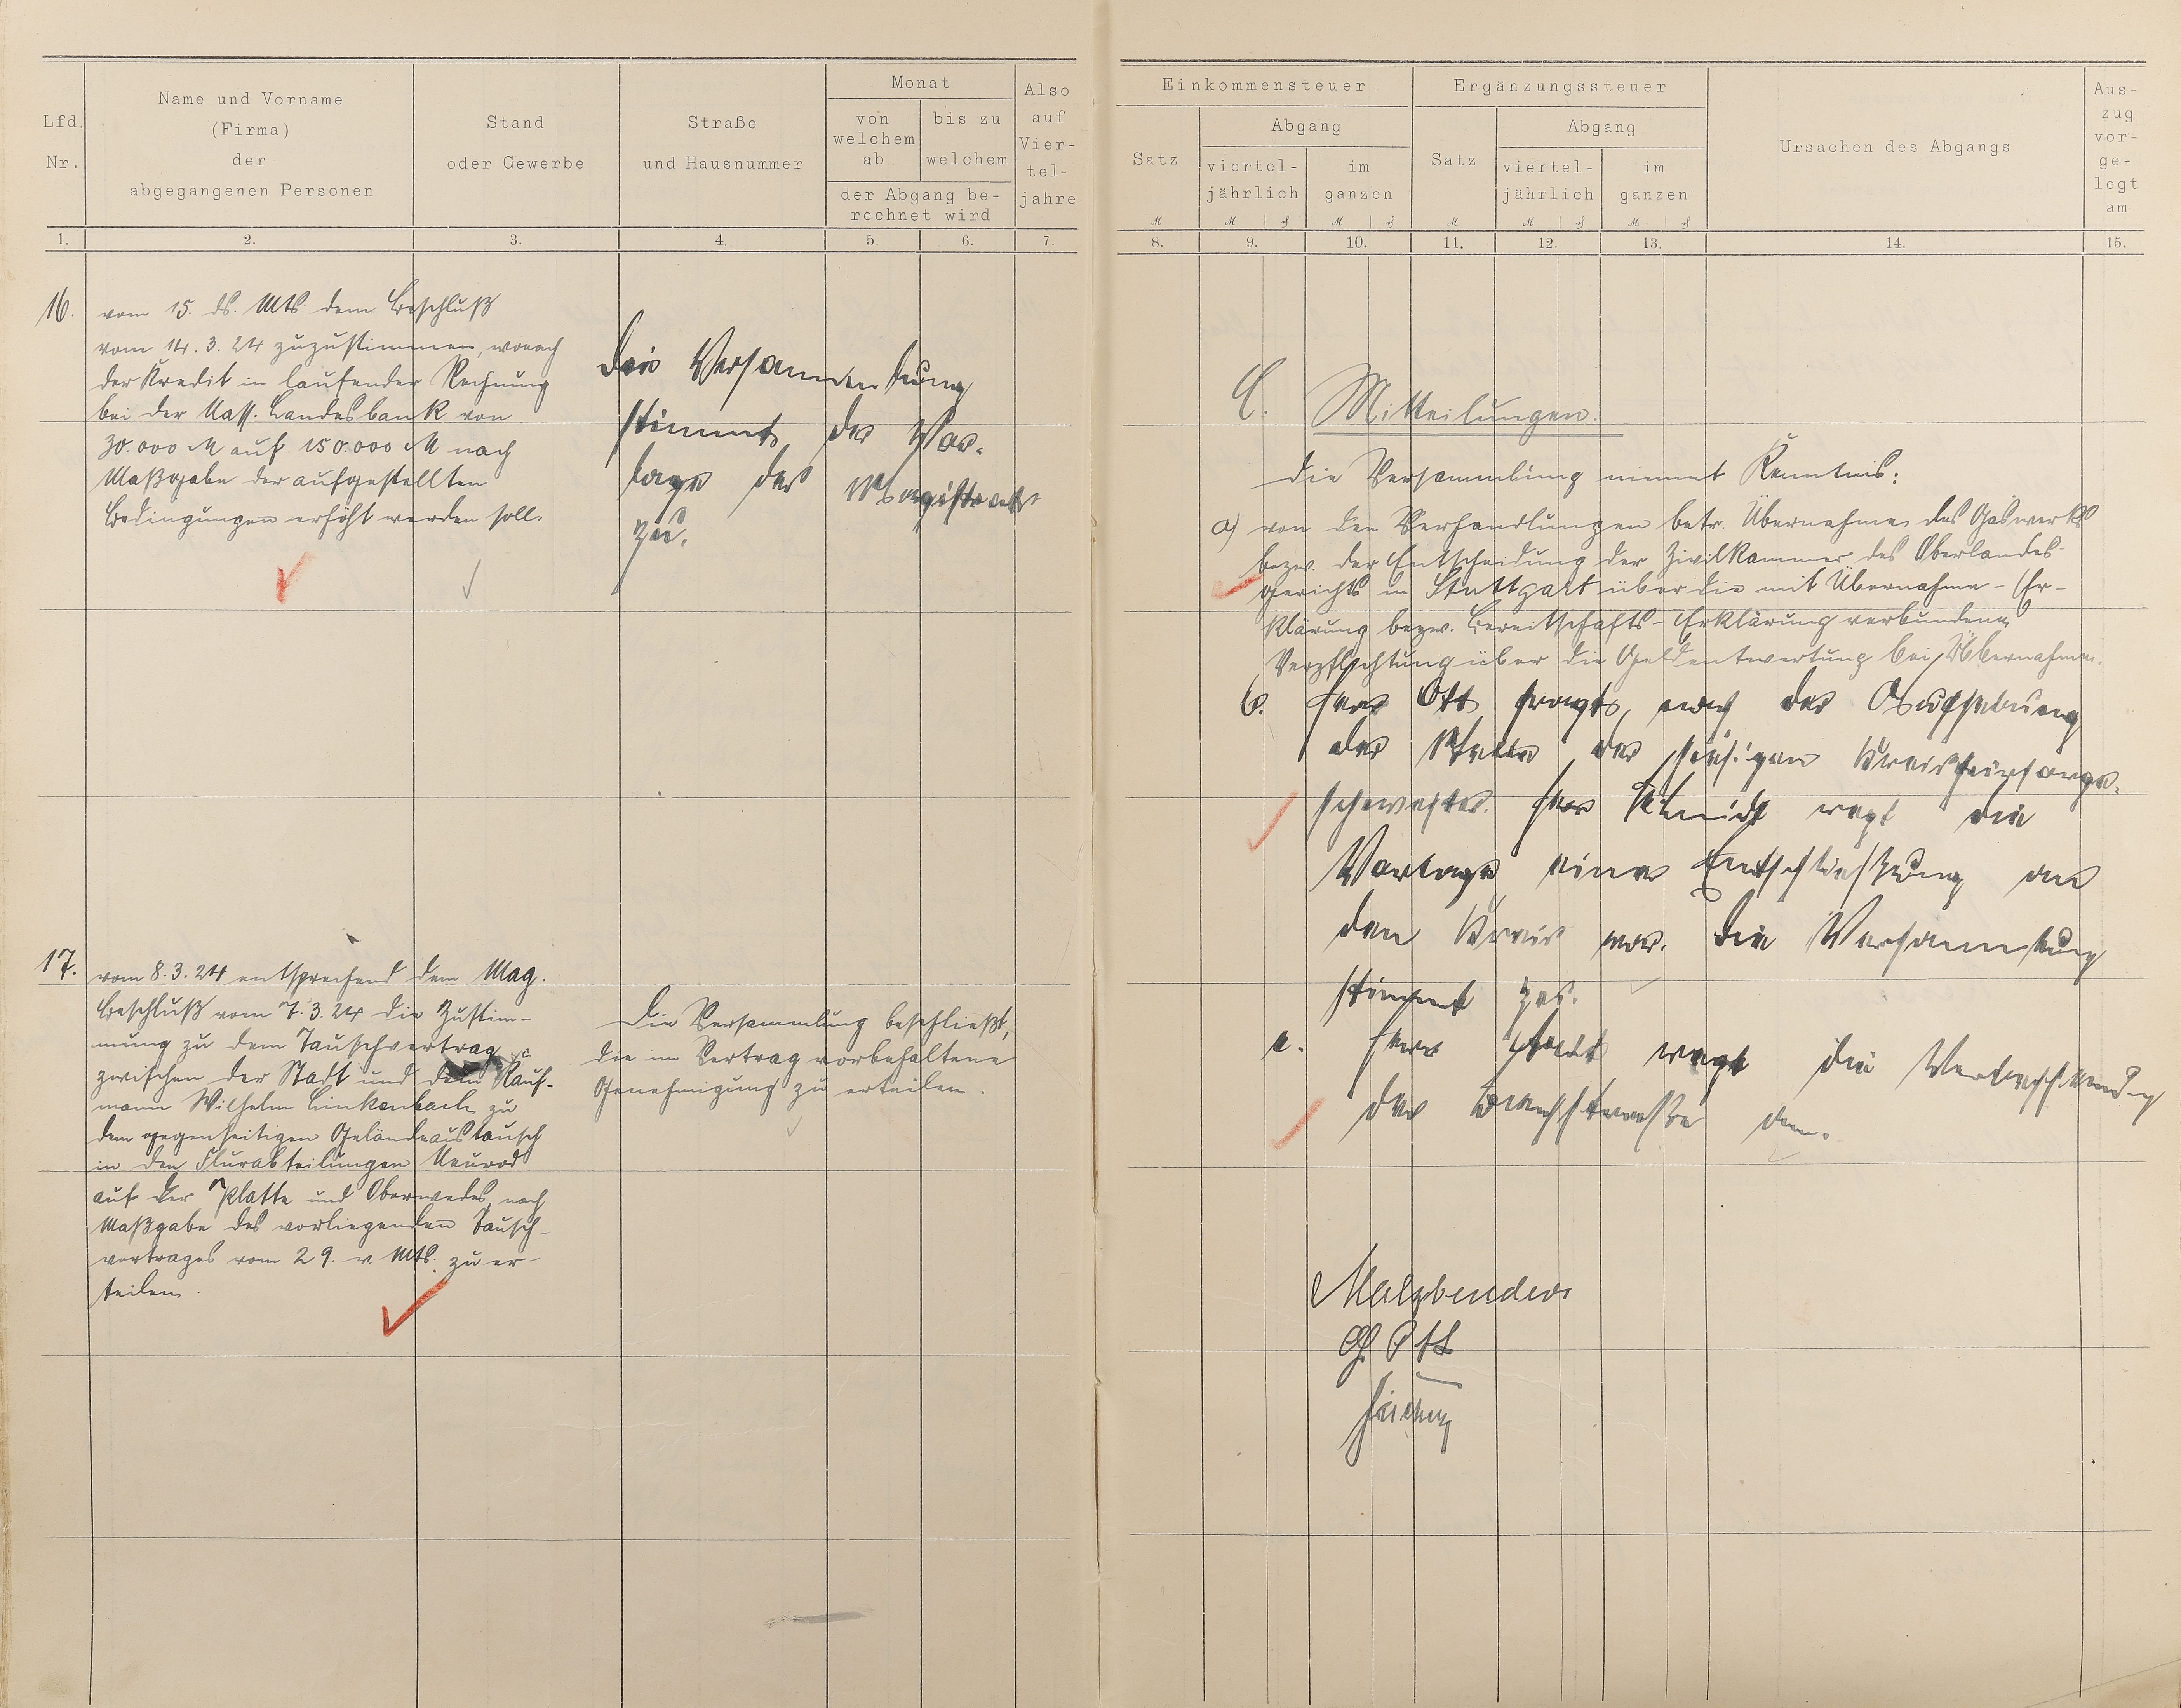 Lfd. Nr.
Name und Vorname
(Firma)
der
abgegangenen Personen
Stand
oder Gewerbe
Straße
und Hausnummer
Monat
von welchem ab
bis zu welchem
der Abgang be-
rechnet wird
Also auf Vier-tel-jahre
1. 2. 3. 4. 5. 6. 7.
16.
vom 15. ds. Mts. dem Beschluß
vom 14.3.24 zuzustimmen, wonach
der Kredit in laufender Rechnung
bei der Nass. Landesbank von
30.000 M auf 150.000 M nach
Maßgabe der aufgestellten
Bedingungen erhöht werden soll.
Die Versammlung
stimmt der Vor-
lage des Magistrats
zu.
17.
vom 8.3.24 entsprechend dem Mag.
Beschluß vom 7.3.24 die Zustim-
mung zu dem Tauschvertrag
zwischen der Stadt und dem Kauf-
mann Wilhelm Linkenbach zu
dem gegenseitigen Geländeaustausch
in den Flurabteilungen Neurod
auf der Platte und Oberwedes nach
Maßgabe des vorliegenden Tausch-
vertrages vom 29. v. Mts. zu er-
teilen.
Die Versammlung beschließt,
die im Vertrag vorbehaltene
Genehmigung zu erteilen.
Einkommensteuer
Satz
Abgang
viertel-
jährlich
im
ganzen
Ergänzungssteuer
Satz
Abgang
viertel-
jährlich
im
ganzen
Ursachen des Abgangs
Aus-
zug
vor-
ge-
legt
am
8. 9. 10. 11. 12. 13. 14. 15.
C. Mitteilungen.
Die Versammlung nimmt Kenntnis:
a) von den Verhandlungen betr. Übernahme des Gaswerks
bezw. der Entscheidung der Zivilkammer des Oberlandes-
gerichts in Stuttgart über die mit Übernahme-Er-
klärung bezw. Bereitschafts-Erklärung verbundene
Verpflichtung über die Geldentwertung bei Übernahme.
b. Herr Ott fragt nach der Aufhebung
der Stelle der hiesigen Kreisfürsorge-
schwester. Herr Schmidt regt die
Vorlage einer Entschließung an
den Kreis vor. Die Versammlung
stimmt zu.
c. Herr regt die
der an.
Malzbender
G. Ott